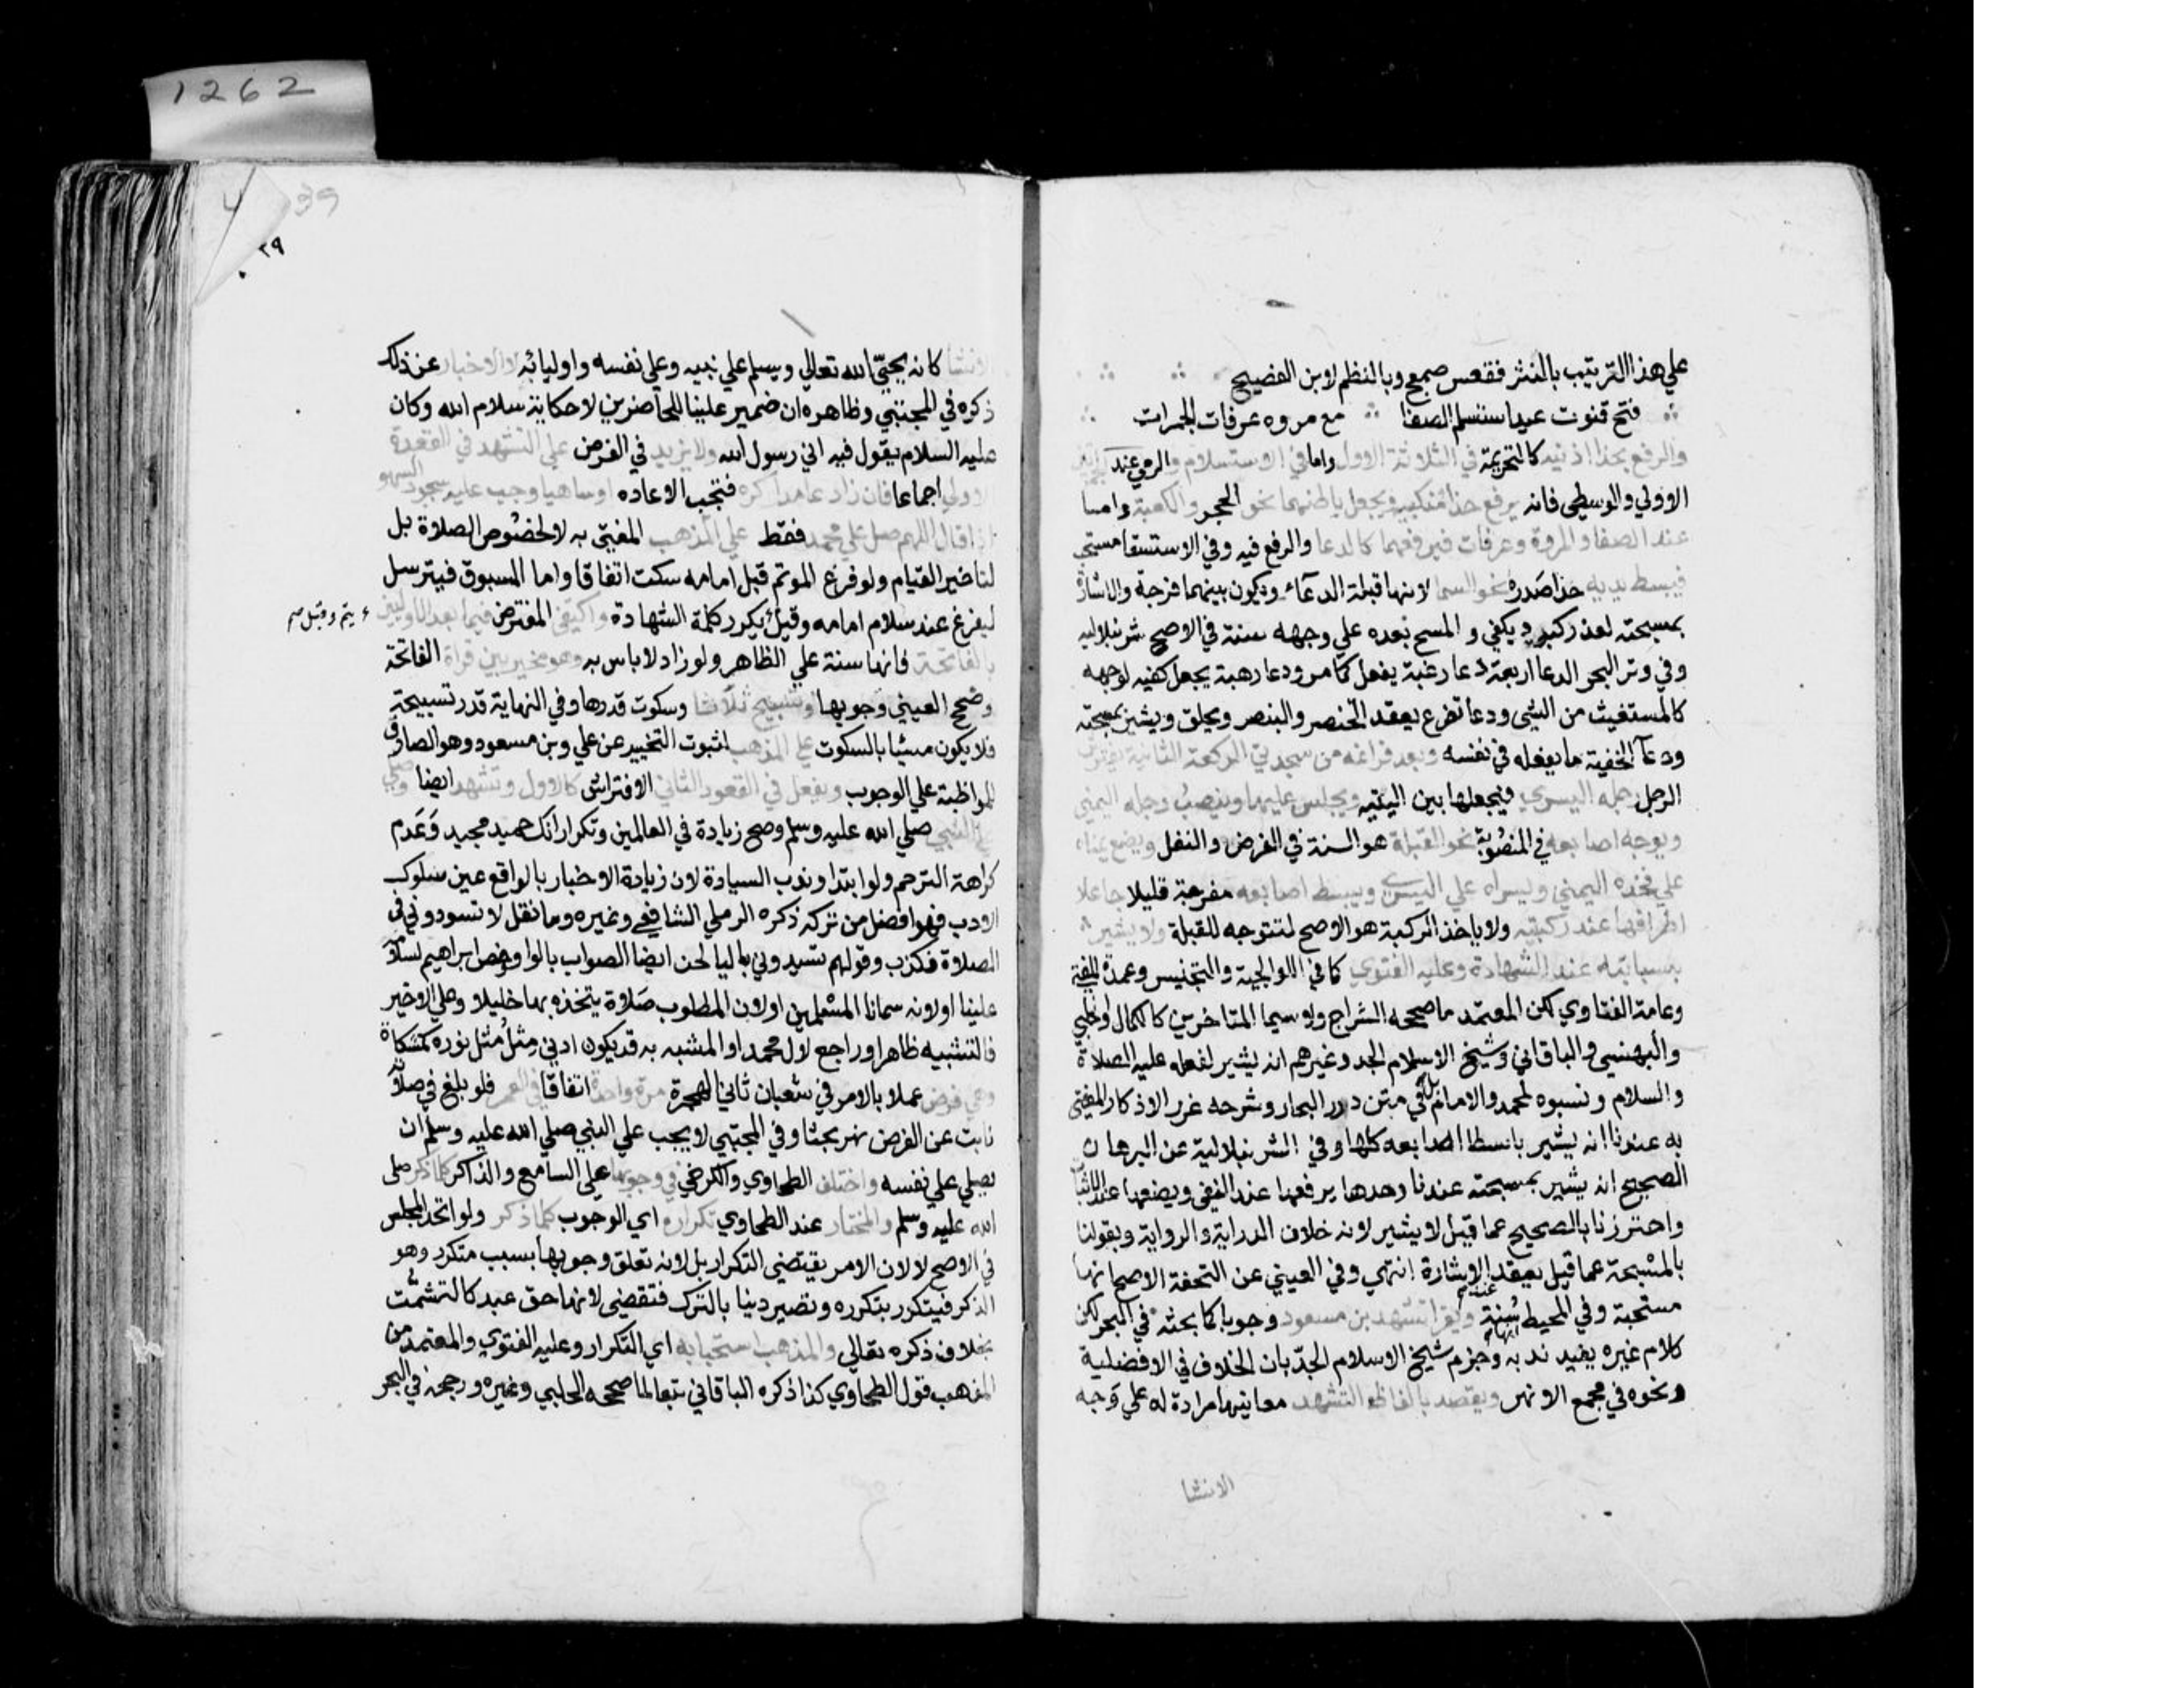 1262
على هذا الترتيب بالنثر فقعس صمعج وبالنظم لابن الفصيح
فتح قنوت عيد استسلم الصفا مع مروه عرفات الجمرات
والرفع بحذا اذنيه كالتحريمة في الثلاثة الاول واما في الاستسلام والرمي عند الجمرتين
الاولي والوسطي فانه يرفع حذا منكبيه ويجعل باطنهما نحو الحجر والكعبة واما
عند الصفا والمروة وعرفات فيرفعهما كالدعا والرفع فيه وفي الاستسقا مستحب
فيبسط يديه حذا صدره نحو السما لانها قبلة الدعآء ويكون بينهما فرجة والاشارة
بمسبحته لعذر كبرد يكفي والمسح بعده علي وجهه سنة في الاصح شرنبلاليه
وفي وتر البحر الدعا اربعة دعا رغبة يفعل كما مر ودعا رهبة يجعل كفيه لوجهه
كالمستغيث من الشي ودعا تضرع يعقد الخنصر والبنصر ويحلق ويشير بمسبحته
ودعآ الخفية ما يفعله في نفسه وبعد فراغه من سجدتي الركعة الثانية يفترش
الرجل رجله اليسري فيجعلها بين اليتيه ويجلس عليها وينصب رجله اليمني
ويوجه اصابعه في المنصوبة نحو القبلة هو السنة في الفرض والنفل ويضع يمناه
علي فخذه اليمني ويسراه علي اليسري ويبسط اصابعه مفرجة قليلا جاعلا
اطرافها عند ركبتيه ولا ياخذ الركبة هو الاصح لتتوجه للقبلة ولا يشير
بسبابته عند الشهادة وعليه الفتوي كما في الولوالجية والتجنيس وعمدة المفتي
وعامة الفتاوي لكن المعتمد ما صححه الشراح ولا سيما المتاخرين كالكمال والحلبي
والبهنسي والباقاني وشيخ الاسلام الجد وغيرهم انه يشير لفعله عليه الصلاة
والسلام ونسبوه لمحمد والامام بل في متن درر البحار وشرحه غرر الاذكار المفتي
به عندنا انه يشير باسطا اصابعه كلها وفي الشرنبلالية عن البرهان
الصحيح انه يشير بمسبحته عندنا وحدها يرفعها عند النفي ويضعها عند الاثبات
واحترزنا بالصحيح عما قيل لا يشير لانه خلاف الدراية والرواية وبقولنا
بالمسبحة عما قيل يعقد الاشارة انتهي وفي العيني عن التحفة الاصح انها
مستحبة وفي المحيط سنة ويقرا تشهد بن مسعود وجوبا كما بحثه في البحر لكن
كلام غيره يفيد ندبه وجزم شيخ الاسلام الجد بان الخلاف في الافضلية
ونحوه في مجمع الانهر ويقصد بالفاظ التشهد معانيها مرادة له علي وجه
الانشا
39
٣٩
الانشا كانه يحيي الله تعالي ويسلم علي نبيه وعلي نفسه واوليائه لا الاخبار عن ذلك
ذكره في المجتبي وظاهره ان ضمير علينا للحاضرين لا حكاية سلام الله وكان
عليه السلام يقول فيه اني رسول الله ولا يزيد في الفرض علي التشهد في القعدة
الاولي اجماعا فان زاد عامدا كره فتجب الاعاده او ساهيا وجب عليه سجود السهو
اذا قال اللهم صل علي محمد فقط علي المذهب المفتي به لا لخصوص الصلاة بل
لتاخير القيام ولو فرغ الموتم قبل امامه سكت اتفاقا واما المسبوق فيترسل
ليفرغ عند سلام امامه وقيل يكرر كلمة الشهادة واكتفي المفترض فيما بعد الاوليين
يتم وقيل
بالفاتحة فانها سنة علي الظاهر ولو زاد لا باس به وهو مخير بين قراة الفاتحة
وصحح العيني وجوبها وتسبيح ثلاثا وسكوت قدرها وفي النهاية قدر تسبيحة
فلا يكون مسيا بالسكوت علي المذهب لثبوت التخيير عن علي وبن مسعود وهو الصارف
للمواظبة علي الوجوب ويفعل في القعود الثاني الافتراش كالاول وتشهد ايضا وصلي
علي النبي صلي الله عليه وسلم وصح زيادة في العالمين وتكرار انك حميد مجيد وعدم
كراهة الترحم ولو ابتدا وندب السيادة لان زيادة الاخبار بالواقع عين سلوك
الادب فهو افضل من تركه ذكره الرملي الشافعي وغيره وما نقل لا تسودوني في
الصلاة فكذب وقولهم تسيدوني باليا لحن ايضا الصواب بالواو وخص ابراهيم لسلامه
علينا او لانه سمانا المسلمين او لان المطلوب صلاة يتخذه بها خليلا وعلي الاخير
فالتشبيه ظاهر او راجع لال محمد او المشبه به قد يكون ادني مثل مثل نوره كمشكاة
وهي فرض عملا بالامر في شعبان ثاني الهجرة مرة واحدة اتفاقا في العمر فلو بلغ في صلاته
نابت عن الفرض نهر بحثا وفي المجتبي لا يجب علي النبي صلي الله عليه وسلم ان
يصلي علي نفسه واختلف الطحاوي والكرخي في وجوبها علي السامع والذاكر كلما ذكر صلي
الله عليه وسلم والمختار عند الطحاوي تكراره اي الوجوب كلما ذكر ولو اتحد المجلس
في الاصح لا لان الامر يقتضي التكرار بل لانه تعلق وجوبها بسبب متكرر وهو
الذكر فيتكرر بتكرره وتصير دينا بالترك فتقضي لانها حق عبد كالتشميت
بخلاف ذكره تعالي والمذهب استحبابه اي التكرار وعليه الفتوي والمعتمد من
المذهب قول الطحاوي كذا ذكره الباقاني تبعا لما صححه الحلبي وغيره ورجحه في البحر